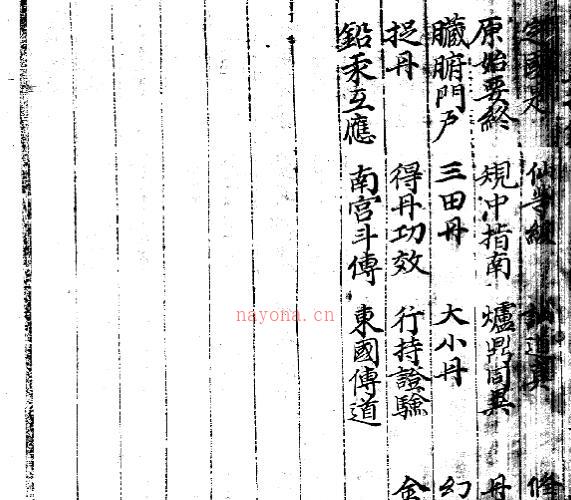 仙等級
原始要終 規中指南 爐鼎同異 丹
臟腑門戶 三田丹 大小丹
捉丹 得丹功效 行持證驗 金
鉛汞互應 南宫斗傳 東國傳道
nayona.cn